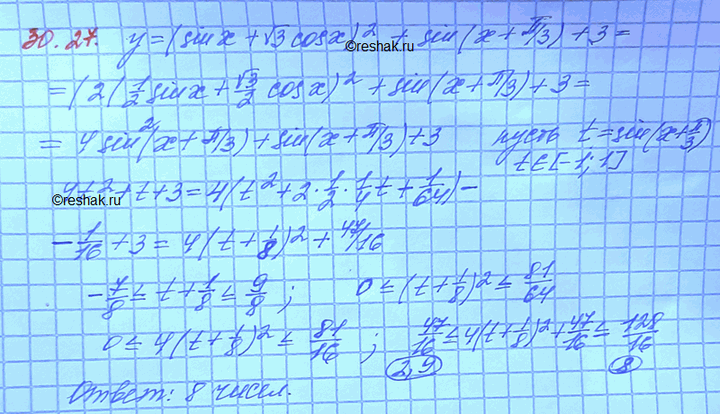 30.27. y = (sin x + √3 cos x)² + sin(x + π/3) + 3 =
©reshak.ru
= (2(1/2 sin x + √3/2 cos x)² + sin(x + π/3) + 3 =
= 4 sin²(x + π/3) + sin(x + π/3) + 3 пусть t = sin(x + π/3)
t ∈ [-1; 1]
4t² + t + 3 = 4(t² + 2·1/2·1/4 t + 1/64) -
©reshak.ru
- 1/16 + 3 = 4(t + 1/8)² + 47/16
- 7/8 ≤ t + 1/8 ≤ 9/8; 0 ≤ (t + 1/8)² ≤ 81/64
0 ≤ 4(t + 1/8)² ≤ 81/16; 47/16 ≤ 4(t + 1/8)² + 47/16 ≤ 128/16
2,9 8
Ответ: 8 чисел.